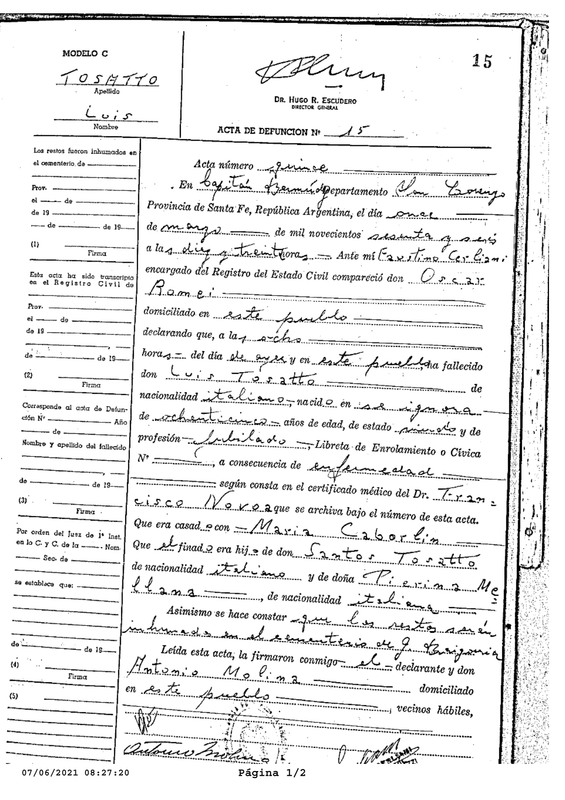 15
MODELO C
TOSATTO
Apellido
Luis
Nombre
DR. HUGO R. ESCUDERO
DIRECTOR GENERAL
ACTA DE DEFUNCION Nº 15
Los restos fueron inhumados en
el cementerio de
Prov.
el de
de 19
de de 19
(1)
Firma
Esta acta ha sido transcripta
en el Registro Civil de
Prov.
el de
de 19
de de 19
(2)
Firma
Corresponde al acta de Defun-
ción Nº Año
de
Nombre y apellido del fallecido
de de 19
(3)
Firma
Por orden del Juez de 1ª Inst.
en lo C. y C. de la Nom.
Sec. de
se establece que:
de de 19
(4)
Firma
(5)
Acta número quince
En Capitán Bermúdez departamento San Lorenzo
Provincia de Santa Fe, República Argentina, el día once
de marzo de mil novecientos sesenta y seis
a las diez y treinta horas Ante mí Faustino
encargado del Registro del Estado Civil compareció don Oscar
Romei
domiciliado en este pueblo
declarando que, a las ocho
horas del día de ayer y en este pueblo ha fallecido
don Luis Tosatto de
nacionalidad italiano, nacido en se ignora
de ochenticinco años de edad, de estado viudo y de
profesión jubilado, Libreta de Enrolamiento o Cívica
Nº , a consecuencia de enfermedad
según consta en el certificado médico del Dr. Fran=
cisco Novoa que se archiva bajo el número de esta acta.
Que era casado con María Caborlin
Que el finado era hijo de don Santos Tosatto
de nacionalidad italiano y de doña Pierina Me=
llana, de nacionalidad italiana
Asimismo se hace constar que los restos serán
inhumados en el cementerio de
Leída esta acta, la firmaron conmigo el declarante y don
Antonio Molina domiciliado
en este pueblo, vecinos hábiles,
Antonio Molina
07/06/2021 08:27:20
Página 1/2